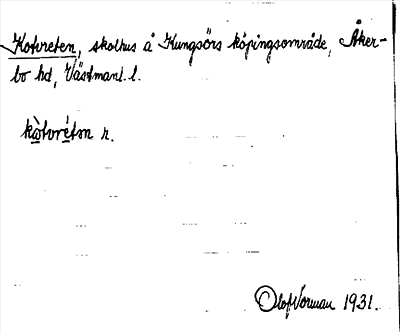 Kotvreten, skolhus å Kungsörs köpingsområde, Åker-
bo hd, Västmanl. l.
kò̱tvré̱tən n.
Olof Norman 1931.